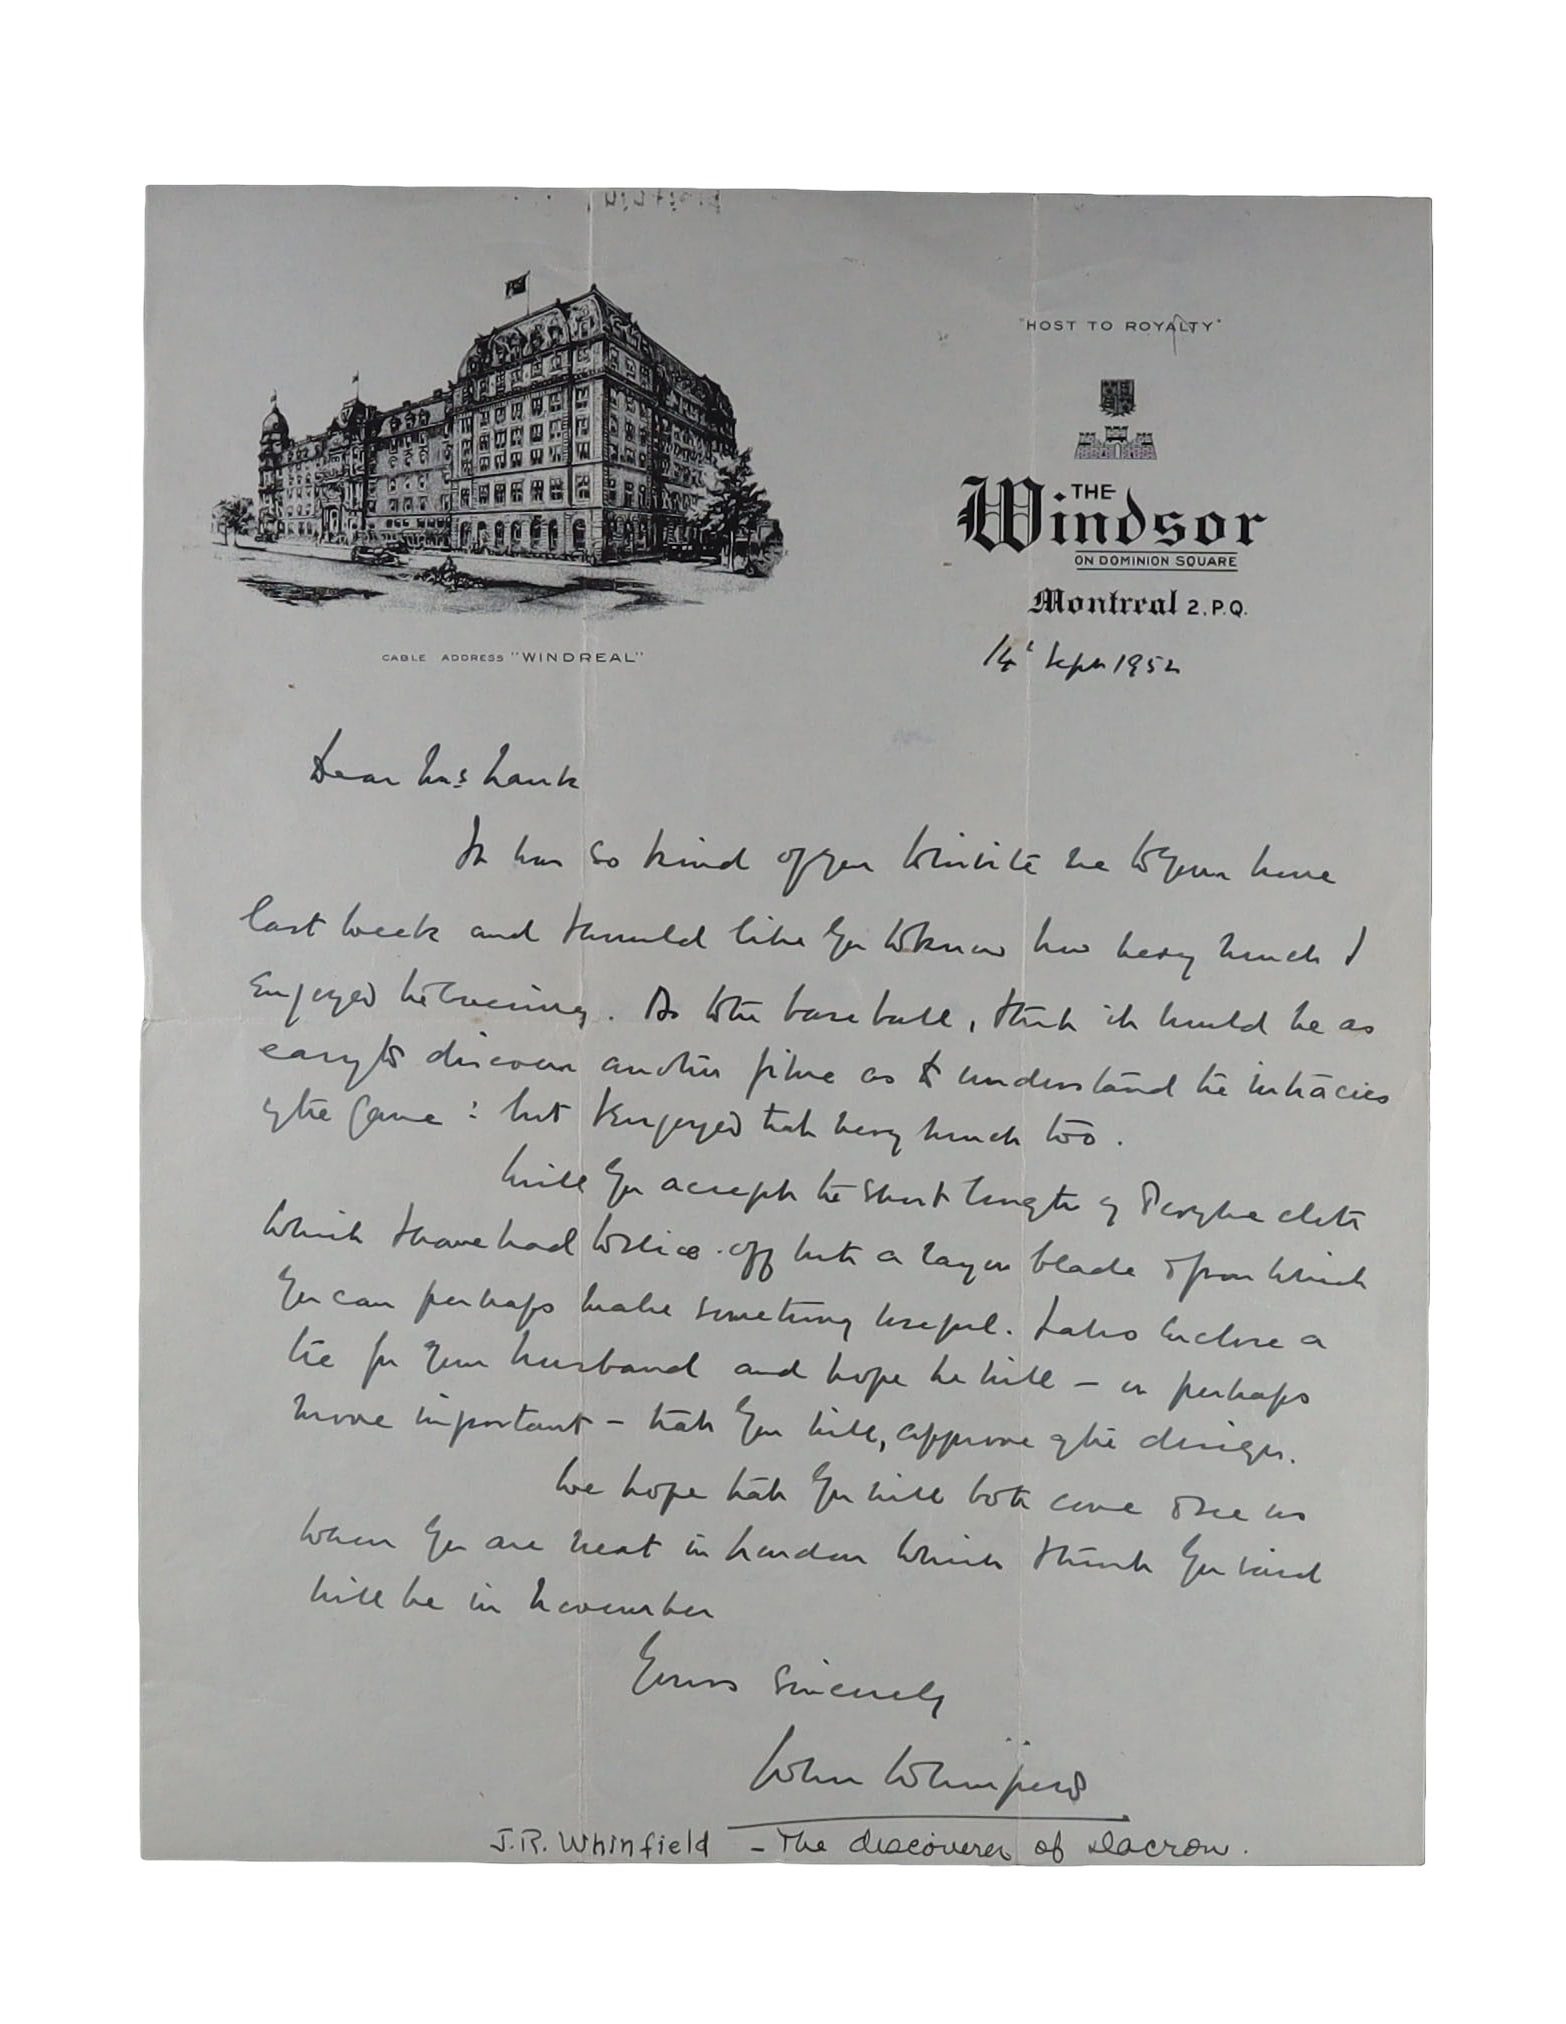 "HOST TO ROYALTY"
THE
Windsor
ON DOMINION SQUARE
Montreal 2. P.Q.
CABLE ADDRESS "WINDREAL"
14th Sept 1952
Dear Mrs
It was so kind of you to invite me to your home
last week and I should like you to know how very much I
enjoyed the evening. As to the baseball, I think it would be as
easy to discover another fibre as to understand the intracies
of the game: but I enjoyed that very much too.
Will you accept the short length of Terylene cloth
which I have had to slice off with a razor blade & from which
you can perhaps make something useful. I also enclose a
tie for your husband and hope he will – or perhaps
more important – that you will, approve of the design.
We hope that you will both come & see us
when you are next in London which I think you said
will be in November
Yours sincerely
John Whinfield
J.R. Whinfield – The discoverer of Dacron.